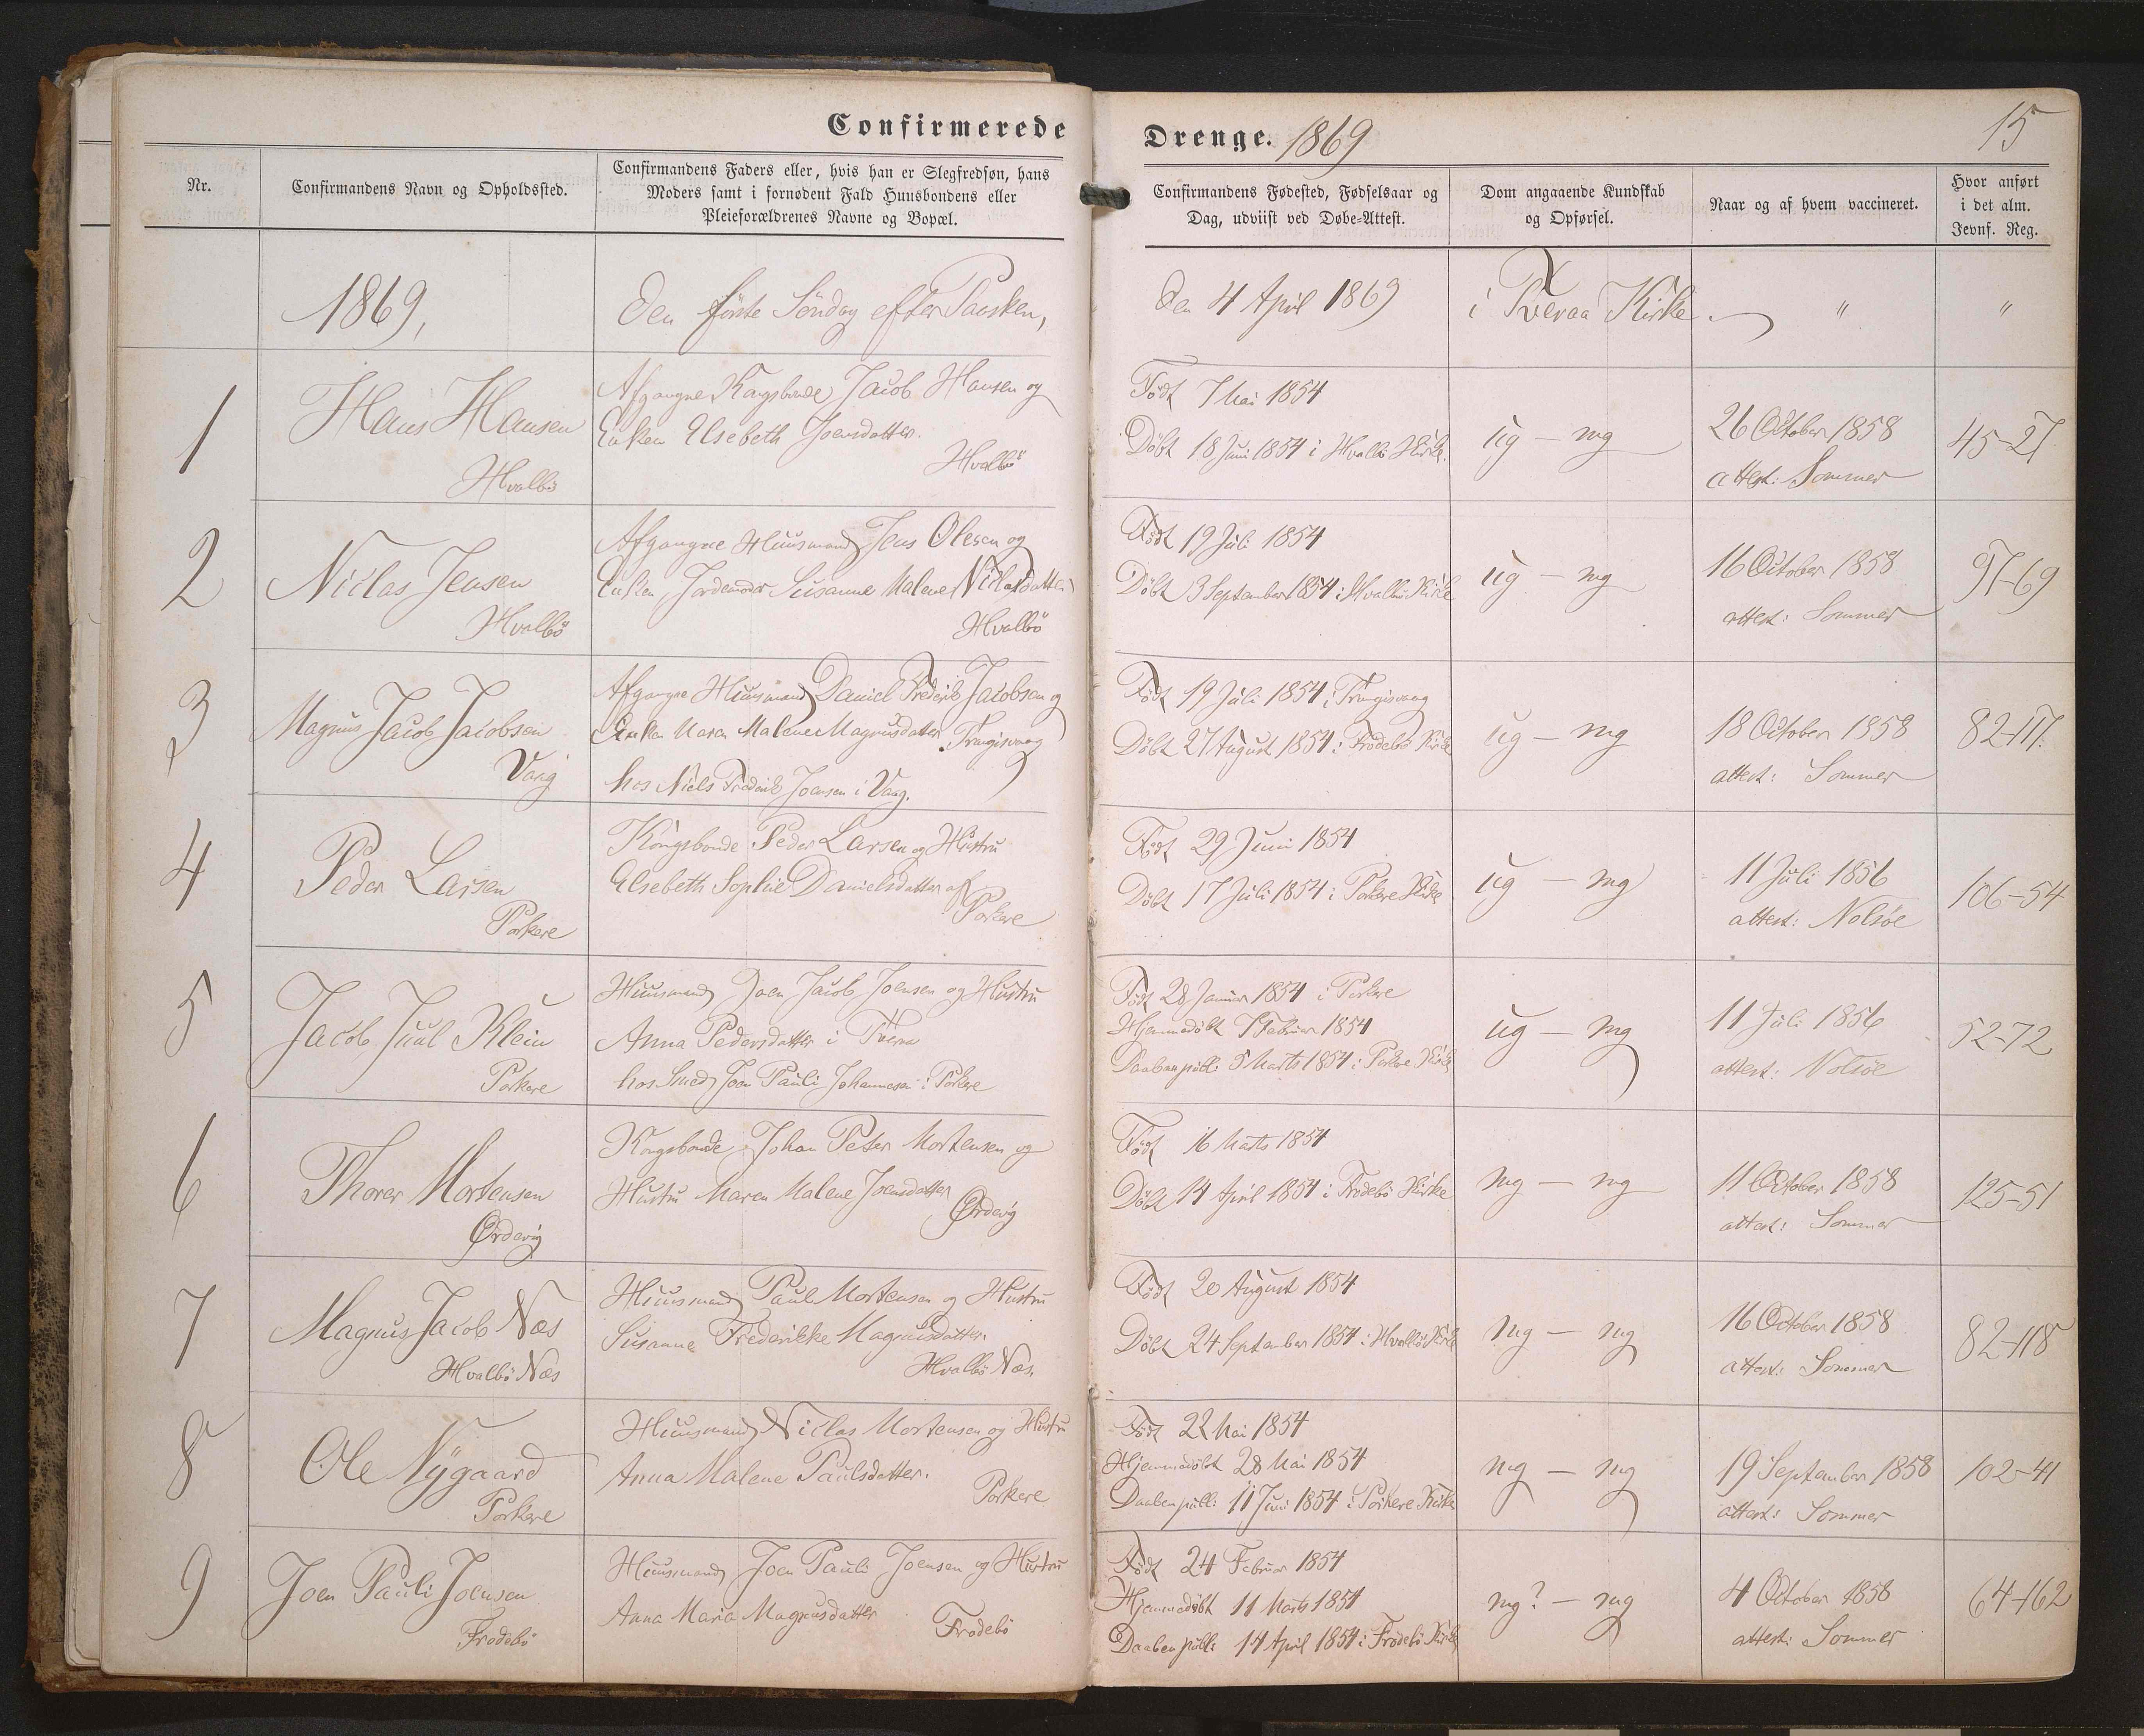 Confirmerede
Drenge. 1869
15
Nr.
Confirmandens Navn og Opholdssted.
Confirmandens Faders eller, hvis han er Slegfredsøn, hans
Moders samt i fornødent Fald Huusbondens eller
Pleieforældrenes Navne og Bopæl.
Confirmandens Fødested, Fødselsaar og
Dag, udviist ved Døbe-Attest.
Dom angaaende Kundskab
og Opførsel.
Naar og af hvem vaccineret.
Hvor anført
i det alm.
Jevnf. Reg.
1869,
Den første Søndag efter Paasken,
Den 4 April 1869
i Tveraa Kirke
"
"
1
Hans Hansen
Hvalbö
Afgangne Kongsbonde Jacob Hansen og
Enken Elsebeth Joensdatter.
Hvalbö
Født 7 Mai 1854
Døbt 18 Juni 1854 i Hvalbö Kirke.
ug — mg
26 October 1858
attest: Sommer
45-27
2
Niclas Jensen
Hvalbö
Afgangne Huusmand Jens Olesen og
Enken Jordemoder Susanne Malene Niclasdatter
Hvalbö
Født 19 Juli 1854
Døbt 3 September 1854 i Hvalbö Kirke
ug — mg
16 October 1858
attest: Sommer
97-69
3
Magnus Jacob Jacobsen
Vaag
Afgangne Huusmand Daniel Frederik Jacobsen og
Enken Maren Malene Magnusdatter Trangisvaag
hos Niels Frederik Joensen i Vaag.
Født 19 Juli 1854 i Trangisvaag
Døbt 27 August 1854 i Frodebö Kirke
ug — mg
18 October 1858
attest: Sommer
82-117.
4
Peder Larsen
Porkere
Kongsbonde Peder Larsen og Hustru
Elsebeth Sophie Danielsdatter af
Porkere
Født 29 Juni 1854
Døbt 17 Juli 1854 i Porkere Kirke
ug — mg
11 Juli 1856
attest: Nolsöe
106-54
5
Jacob Juul Klein
Porkere
Huusmand Joen Jacob Joensen og Hustru
Anna Pedersdatter i Tveraa
hos Smed Joen Pauli Johannesen i Porkere
Født 28 Januar 1854 i Porkere
Hjemmedöbt 7 Februar 1854
Daaben publ: 5 Marts 1854 i Porkere Kirke
ug — mg
11 Juli 1856
attest: Nolsöe
52-72
6
Thorer Mortensen
Ørdevig
Kongsbonde Johan Peter Mortensen og
Hustru Maren Malene Joensdatter
Ørdevig
Født 16 Marts 1854
Døbt 14 April 1854 i Frodebö Kirke
mg — mg
11 October 1858
attest: Sommer
125-51
7
Magnus Jacob Næs
Hvalbö Næs
Huusmand Paul Mortensen og Hustru
Susanne Frederikke Magnusdatter.
Hvalbö Næs.
Født 20 August 1854
Døbt 24 September 1854 i Hvalbö Kirke
mg — mg
16 October 1858
attest: Sommer
82-118
8
Ole Nygaard
Porkere
Huusmand Niclas Mortensen og Hustru
Anna Malene Paulsdatter.
Porkere
Født 22 Mai 1854
Hjemmedöbt 28 Mai 1854
Daaben publ: 11 Juni 1854 i Porkere Kirke
mg — mg
19 September 1858
attest: Sommer
102-41
9
Joen Pauli Joensen
Frodebö
Huusmand Joen Pauli Joensen og Hustru
Anna Maria Magnusdatter
Frodebö
Født 24 Februar 1854
Hjemmedöbt 11 Marts 1854
Daaben publ: 14 April 1854 i Frodebö Kirke
mg? — mg
4 October 1858
attest: Sommer
64-162